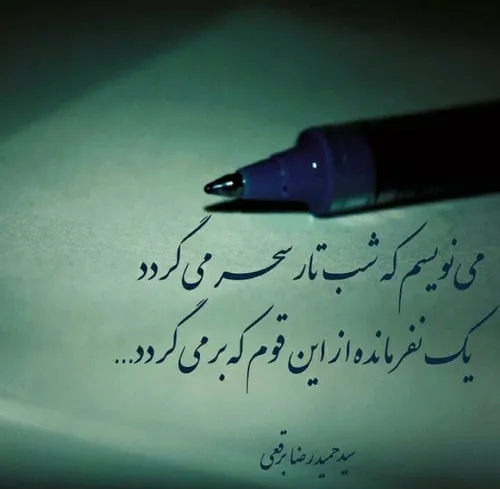 می نویسم که شب تار سحر می گردد
یک نفر مانده از این قوم که برمی گردد...
سید حمیدرضا برقعی